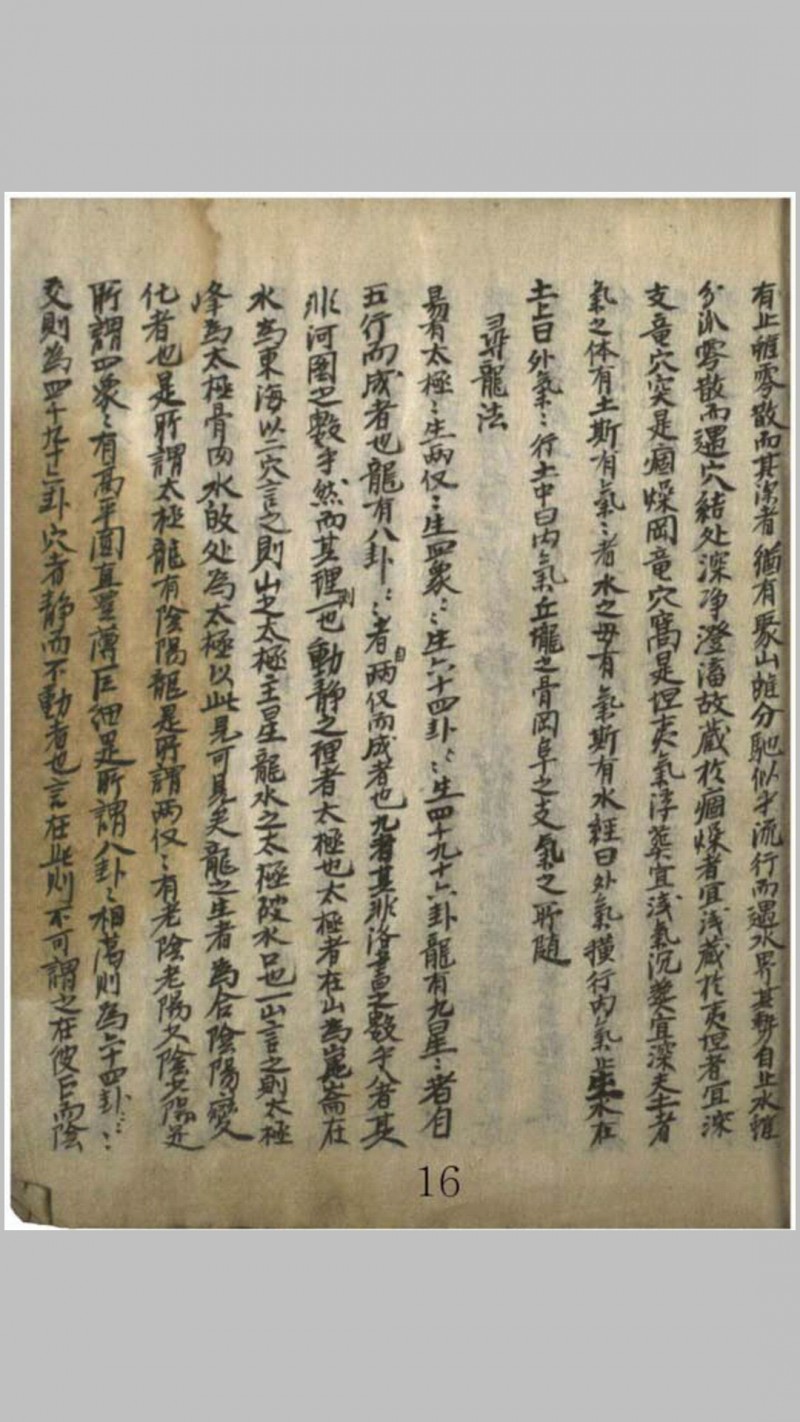 有止雖雰散而其深者猶有聚山雖分馳似乎流行而遇水界其勢自止水雖
分㳁雰散而遇穴結处深净澄滀故藏扵痼燥者宜浅藏扵夷坦者宜深
支竜穴突是痼燥岡竜穴窩是坦夷氣浮葬宜浅氣沉葬宜深夫土者
氣之体有土斯有氣〻者水之母有氣斯有水経曰外氣横行內氣止生水在
土上曰外氣〻行土中曰內氣丘壠之骨岡阜之支氣之所随
尋龍法
易有太極〻生両仅〻生四象〻〻生六十四卦〻〻生四千九十六卦龍有九星〻者自
五行而成者也龍有八卦〻〻者自両仅而成者也九者其非洛書之数乎八者其
非河圖之数乎然而其理則一也動静之理者太極也太極者在山為崑崙在
水為東海以一穴言之則山之太極主星龍水之太極破水口也一山言之則太極
峰為太極骨肉水故处為太極以此見可見矣龍之生者為合陰陽變
化者也是所謂太極龍有陰陽龍是所謂両仅〻有老陰老陽少陰少陽是
所謂四象〻有高平圓直豊薄巨細是所謂八卦〻相蕩則為六十四卦〻〻
交則為四千九十六卦穴者静而不動者也言在此則不可謂之在彼巳而陰
16